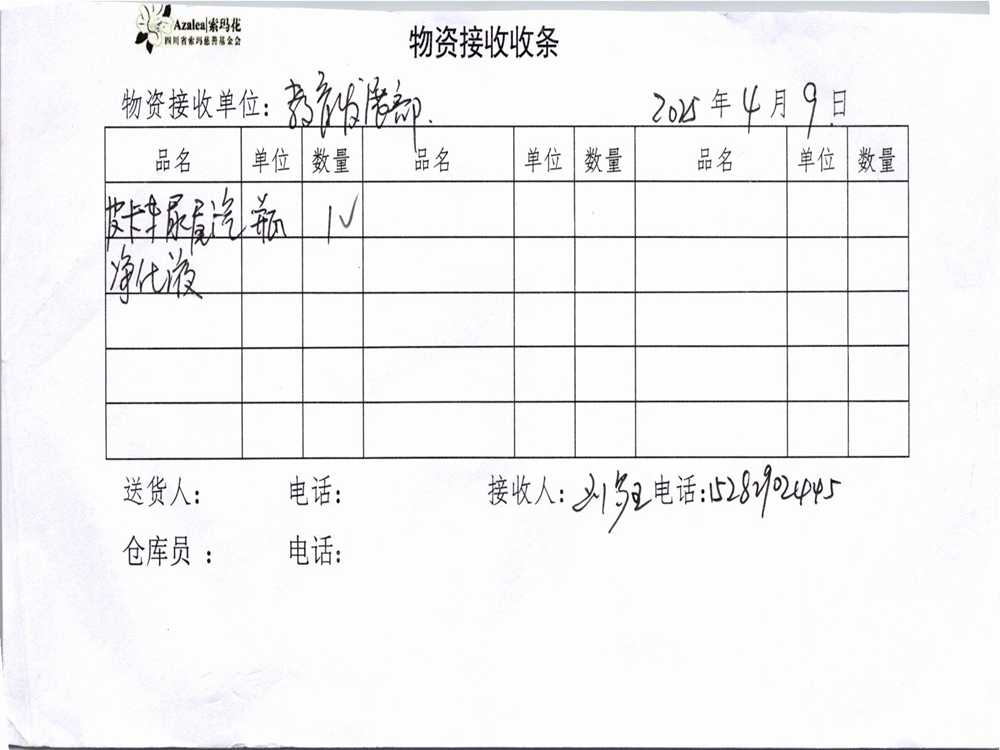 Azalea|索玛花
四川省索玛慈善基金会
物资接收收条
物资接收单位: 教育发展部. 2025年4月9日
品名 单位 数量 品名 单位 数量 品名 单位 数量
皮卡车尿尾汽 瓶 1✓
净化液
送货人: 电话: 接收人: 刘 电话:15282902445
仓库员 : 电话: